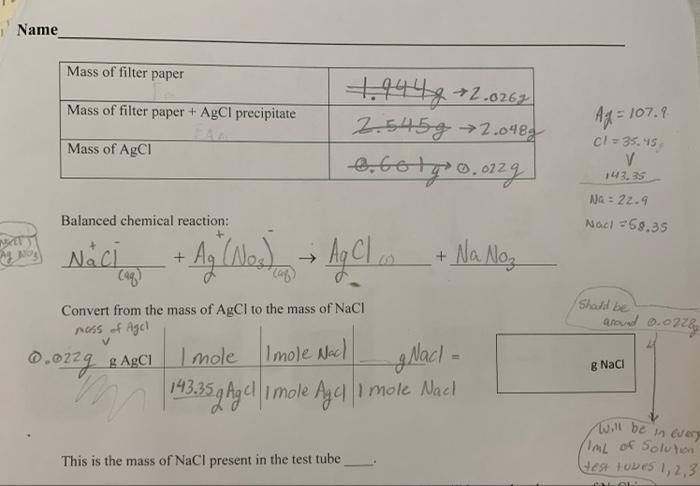 Name
Mass of filter paper
1.944g → 2.026g
Mass of filter paper + AgCl precipitate
2.545g → 2.048g
Mass of AgCl
0.601g → 0.022g
Ag = 107.9
Cl = 35.45
143.35
Na = 22.9
Nacl = 58.35
Balanced chemical reaction:
Na+Cl- (aq) + Ag+(NO3)- (aq) → AgCl (s) + NaNO3
Convert from the mass of AgCl to the mass of NaCl
mass of Agcl
0.022g g AgCl | 1 mole | 1 mole Nacl | g Nacl =
143.35g Agcl | 1 mole Agcl | 1 mole Nacl
g NaCl
Should be
around 0.0228g
Will be in every
1mL of Solution
test tubes 1,2,3
This is the mass of NaCl present in the test tube ____.